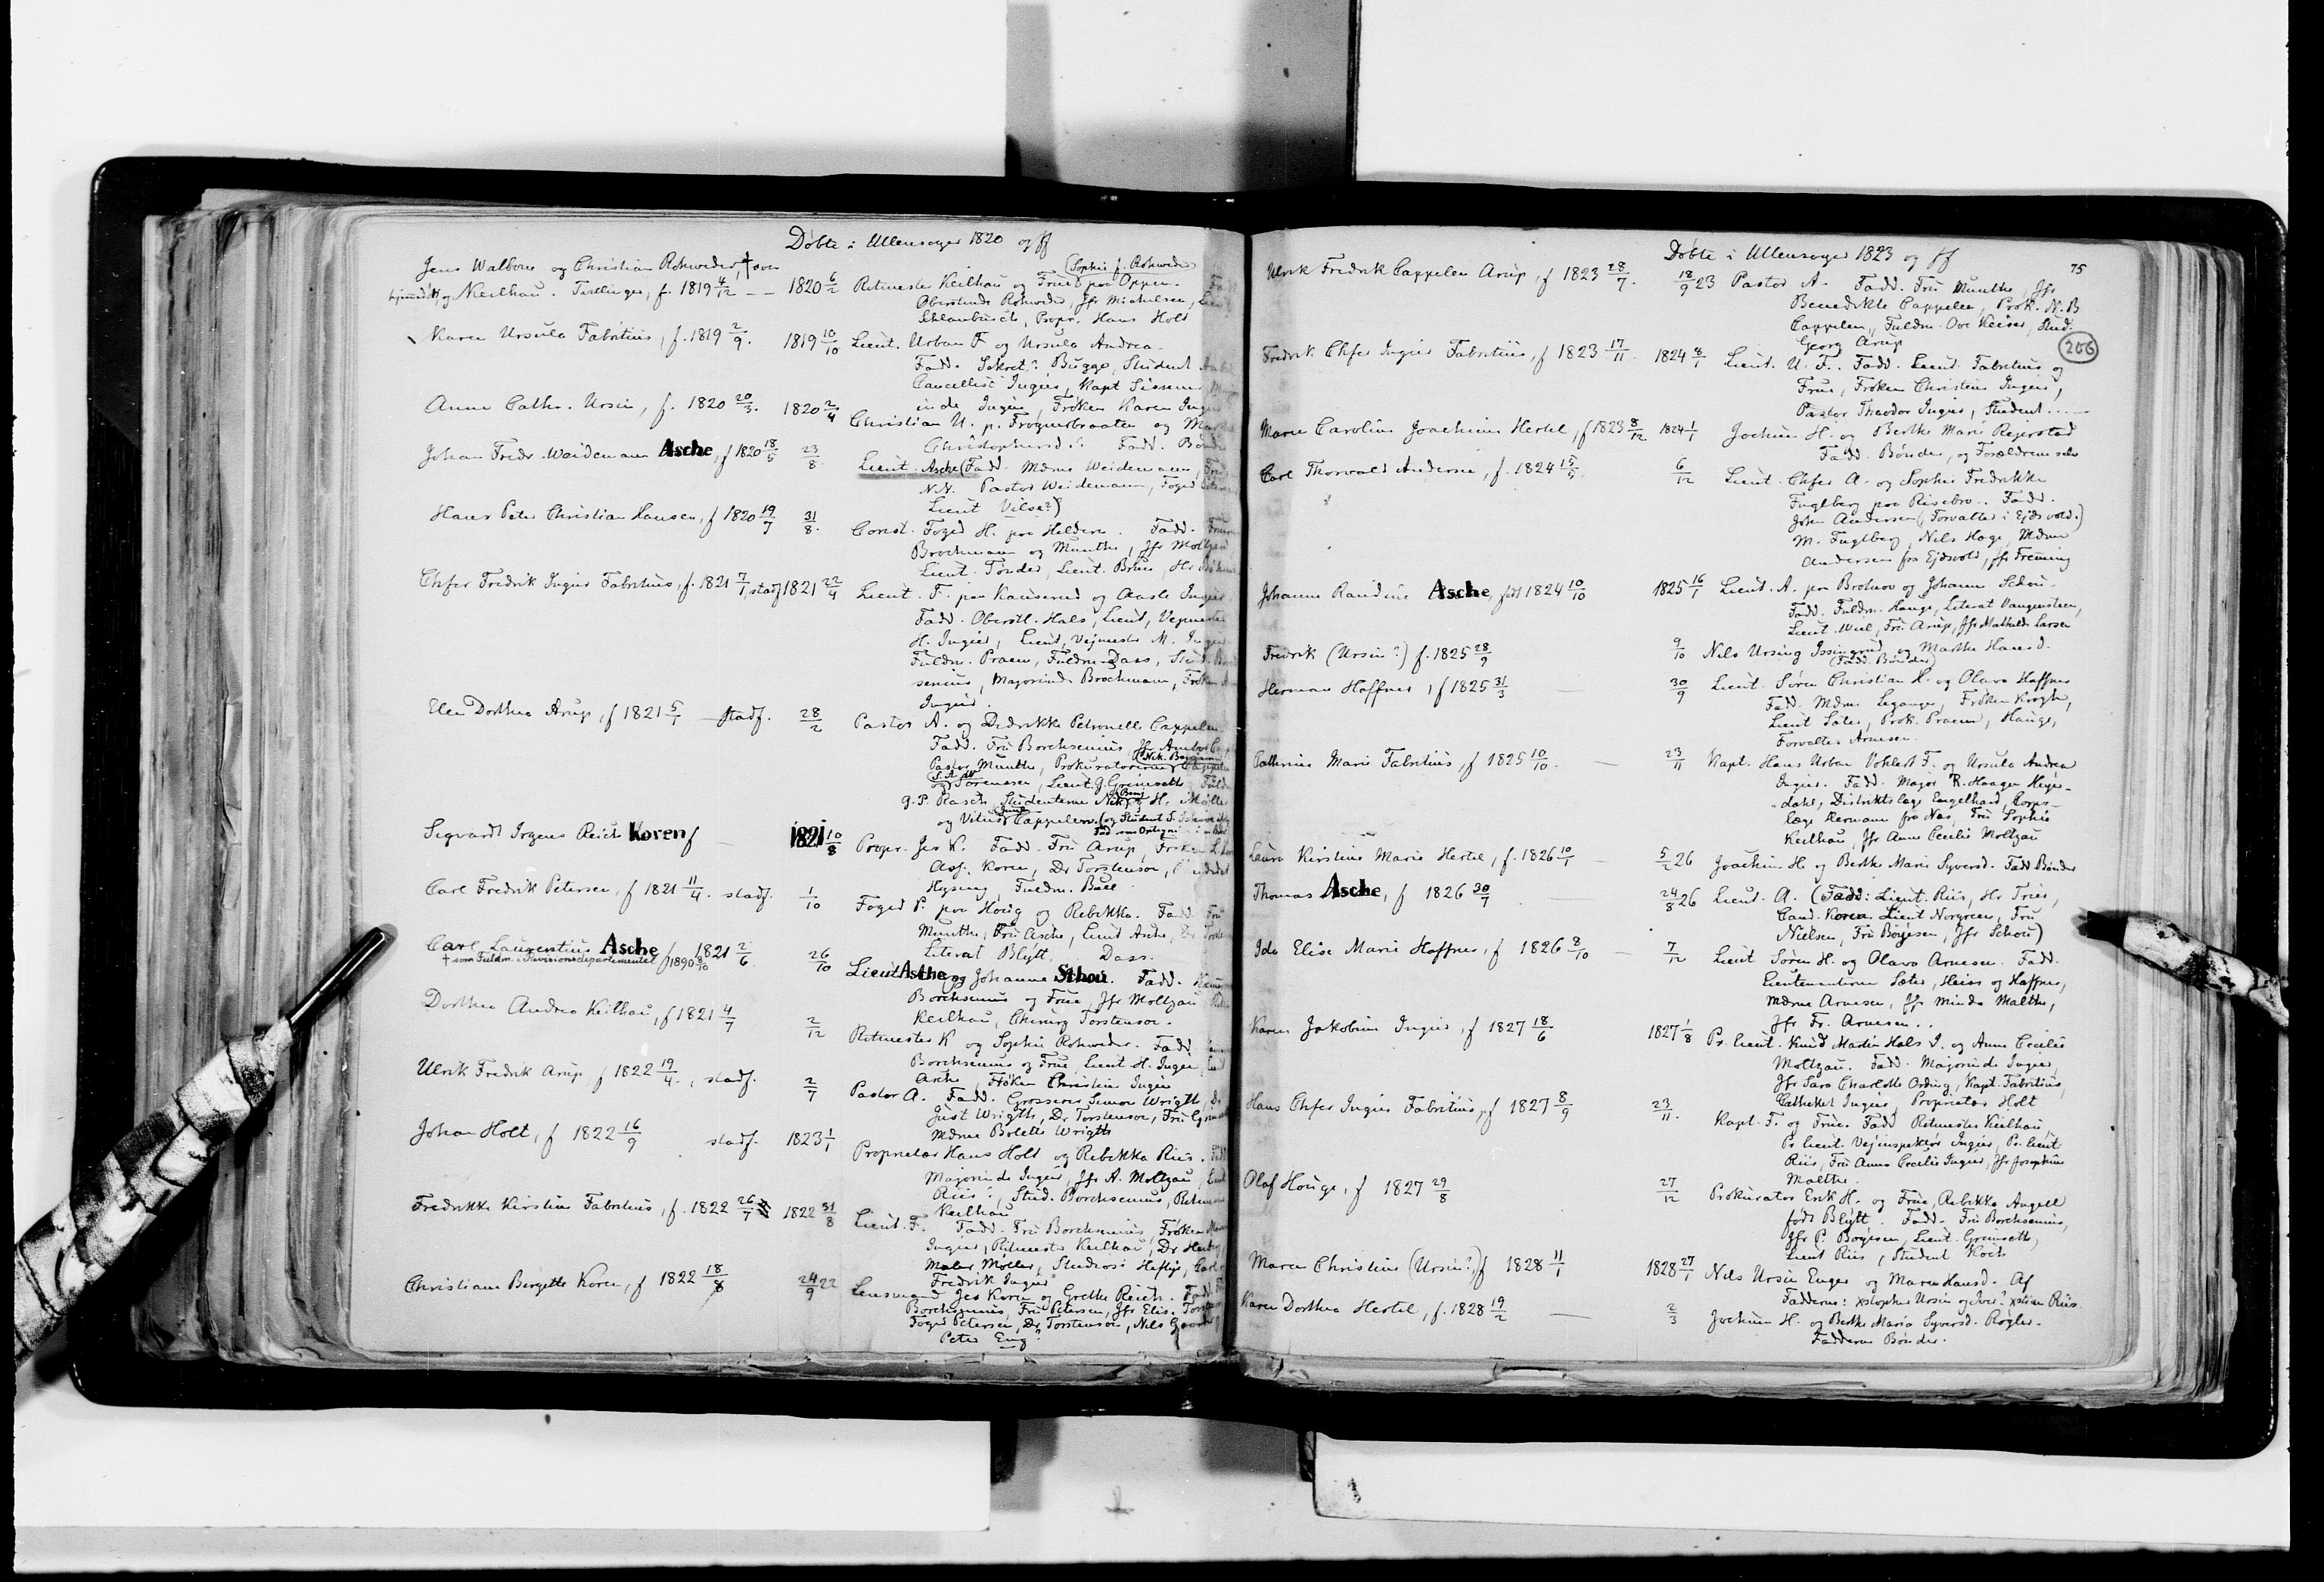 Døbte i Ullensager 1820 og ff
Jens Walborn og Christian Rohweder, † som
og Keilhau. Tvillinger, f. 1819 4/12 — — 1820 6/2 Ritmester Keilhau og Frue (Sophie f. Rohweder
Oberstinde Rohweder, Jfr Michelsen,
Propr. Hans Holst
Karen Ursula Fabritius, f. 1819 2/9. 1819 10/10 Lieut. Urban F og Ursula Andrea
Fadd. Sekret. Bugge, Student
Cancellist Ingier, Kapt Sissener
inde Ingier, Frøken Karen
Anne Cathr. Ursin, f. 1820 20/3. 1820 2/4 Christian U. p. Frognerbraaten og
Christophersd. Fadd. Bønder
Johan Fredr. Weidemann Asche, f 1820 18/5 23/8. Lieut. Asche (Fadd. Mdme Weidemann,
N.N. Pastor Weidemann, Foged
Lieut Vilse?)
Hans Peter Christian Hansen, f 1820 19/7 31/8. Const. Foged H. paa Heldern. Fadd.
Brochmann og Munthe, Jfr Moltzau
Lieut. Tønder, Lieut. Bruu,
Chfer Fredrik Ingier Fabritius, f. 1821 7/1, stadf 1821 22/4 Lieut. F. paa Kauserud og Aasle
Fadd. Oberstl. Hals, Lieut, Vejmester
H. Ingier, Lieut, Vejmester M.
Fuldm. Praem, Fuldm. Dass,
senius, Majorinde Brochmann,
Ingier.
Elen Dorthea Arup, f 1821 5/1 — stadf. 28/2 Pastor A. og Didrikke Petronelle Cappelen
Fadd. Fru Borchsenius,
Pastor Munthe,
Sørensen, Lieut. G. Grimseth,
G. P. Rasch, Studenterne Nik. H.
og Vitus Cappelen.
Segvardt Irgens Reich Koren f — 1821 10/8 Propr. Jes K. Fadd. Fru Arup,
Ass. Koren, Dr Torstensen,
Hysing, Fuldm. Bull
Carl Fredrik Petersen, f 1821 11/4. stadf. 1/10 Foged P. paa Houg og Rebekka. Fadd
Munthe, Fru Asche, Lieut Asche,
Literat Blytt, Dass.
Carl Laurentius Asche, f 1821 2/6. 26/10 Lieut Asche og Johanne Schou. Fadd.
† som Fuldm. i Revisionsdepartementet 1890 8/10
Borchsenius og Frue, Jfr Moltzau
Keilhau, Chirurg Torstensen.
Dorthea Andrea Keilhau, f 1821 4/7 2/12 Ritmester K og Sophie Rohweder. Fadd
Borchsenius og Frue, Lieut H. Ingier,
Asche, Frøken Christin Ingier
Ulrik Fredrik Arup f 1822 19/4., stadf. 2/7 Pastor A. Fadd. Grosserer Simon Wrigth,
Just Wrigth, Dr Torstensen, Fru
Mdme Bolette Wrigth
Johan Holt, f 1822 16/9 stadf. 1823 1/1 Proprietær Hans Holst og Rebekka Riis.
Majorinde Ingier, Jfr A. Moltzau,
Riis, Stud. Borchsenius,
Keilhau
Fredrikke Kirstine Fabritius, f. 1822 26/7 1822 31/8 Lieut. F. Fadd. Fru Borchsenius, Frøken
Ingier, Ritmester Keilhau, Dr
Maler Møller, Studiosi Heftye,
Fredrik Ingier
Christiane Birgette Koren, f 1822 18/8 24/9 22 Lensmand Jes Koren og Grethe Reich. Fadd
Borchsenius, Fru Petersen, Jfr Elis.
Foged Petersen, Dr Torstensen, Nils
Peter Eng
Døbte i Ullensager 1823 og ff
75
206
Ulrik Fredrik Cappelen Arup, f 1823 28/7. 18/9 23 Pastor A. Fadd. Fru Munthe, Jfr
Benedikte Cappelen, Prok. N. B
Cappelen, Fuldm. Ove Keiser, Stud.
Georg Arup
Fredrik Chfer Ingier Fabritius, f 1823 17/11 1824 4/1 Lieut. U. F. Fadd. Lieut. Fabritius og
Frue, Frøken Christine Ingier,
Pastor Theodor Ingier, Student ....
Maren Caroline Joachime Hertel, f 1823 8/12 1824 1/1 Jochim H. og Berthe Marie Rejerstad
Fadd. Bønder, og Forældrene selv
Carl Thorvald Andersen, f. 1824 15/5. 6/12 Lieut. Chfer A. og Sophie Fredrikke
Fuglberg paa Risebro. Fadd.
John Andersen (Forvalter i Ejdsvold.)
M. Fuglberg, Nils Hage, Mdme
Andersen fra Ejdsvold, Jfr Freming
Johanne Randine Asche, født 1824 10/10 1825 16/1 Lieut. A. paa Brotnov og Johanne Schou.
Fadd. Fuldm. Hauge, Literat Vangensteen,
Lieut. Wiel, Fru Arup, Jfr Mathilde Larsen
Fredrik (Ursin?) f. 1825 28/9 9/10 Nils Ursing Issingrud og Marthe Hansd.
(Fadd. Bønder)
Herman Haffner, f 1825 31/3 — 30/9 Lieut. Søren Christian H. og Olava Haffner
Fadd. Mdme Leganger, Frøken Krogh,
Lieut Sæter, Prok. Praem, Hauge,
Forvalter Arnesen.
Cathrine Marie Fabritius, f 1825 10/10. — 23/11 Kapt. Hans Urban F. og Ursula Andrea
Ingier. Fadd. Major R. Haagen Heyer-
dahl, Distriktslæge Engelhard, Corps-
læge Hermann fra Næs, Fru Sophie
Keilhau, Jfr Anne Cecilie Moltzau
Laura Kirstine Marie Hertel, f. 1826 10/1 — 5/2 26 Joachim H. og Berthe Marie Syversd. Fadd Bønder
Thomas Asche, f 1826 30/7 — 24/8 26 Lieut. A. (Fadd: Lieut. Riis, Hr Tries,
Cand. Koren Lieut Norgreen, Fru
Nielsen, Fru Børgesen, Jfr Schou)
Ida Elise Marie Haffner, f 1826 8/10 — 7/12 Lieut Søren H. og Olava Arnesen. Fadd.
Lieutenanterne Sæter, Heiss og Haffner,
Mdme Arnesen, Jfr Minda Malthe,
Jfr Fr. Arnesen..
Karen Jakobine Ingier, f 1827 18/6 1827 1/8 Pr. Lieut. Knud Martin Hals I. og Anne Cecilie
Moltzau. Fadd. Majorinde Ingier,
Jfr Sara Charlotte Ording, Kapt. Fabritius,
Catheket Ingier, Proprietær Holt
Hans Chfer Ingier Fabritius, f 1827 8/9 23/11. Kapt. F. og Frue. Fadd Ritmester Keilhau,
Pr. Lieut. Vejinspektør Ingier, Pr. Lieut
Riis, Fru Anne Cecilie Ingier, Jfr Josephine
Malthe.
Olaf Houge, f 1827 29/8 27/12 Prokurator Erik H. og Frue, Rebekka Angell
født Blytt. Fadd. Fru Borchsenius,
Jfr P. Børgesen, Lieut. Grimseth,
Lieut Riis, Student Koch
Maren Christine (Ursin?) f 1828 11/1 1828 27/1 Nils Ursin Enger og Maren Hansd. Af
Fadderne: Xstopher Ursin og Xstian Riis.
Karen Dorthea Hertel, f. 1828 19/2 — 2/3 Jochim H. og Berthe Maria Syversd. Røgler.
Fadderne Bønder.